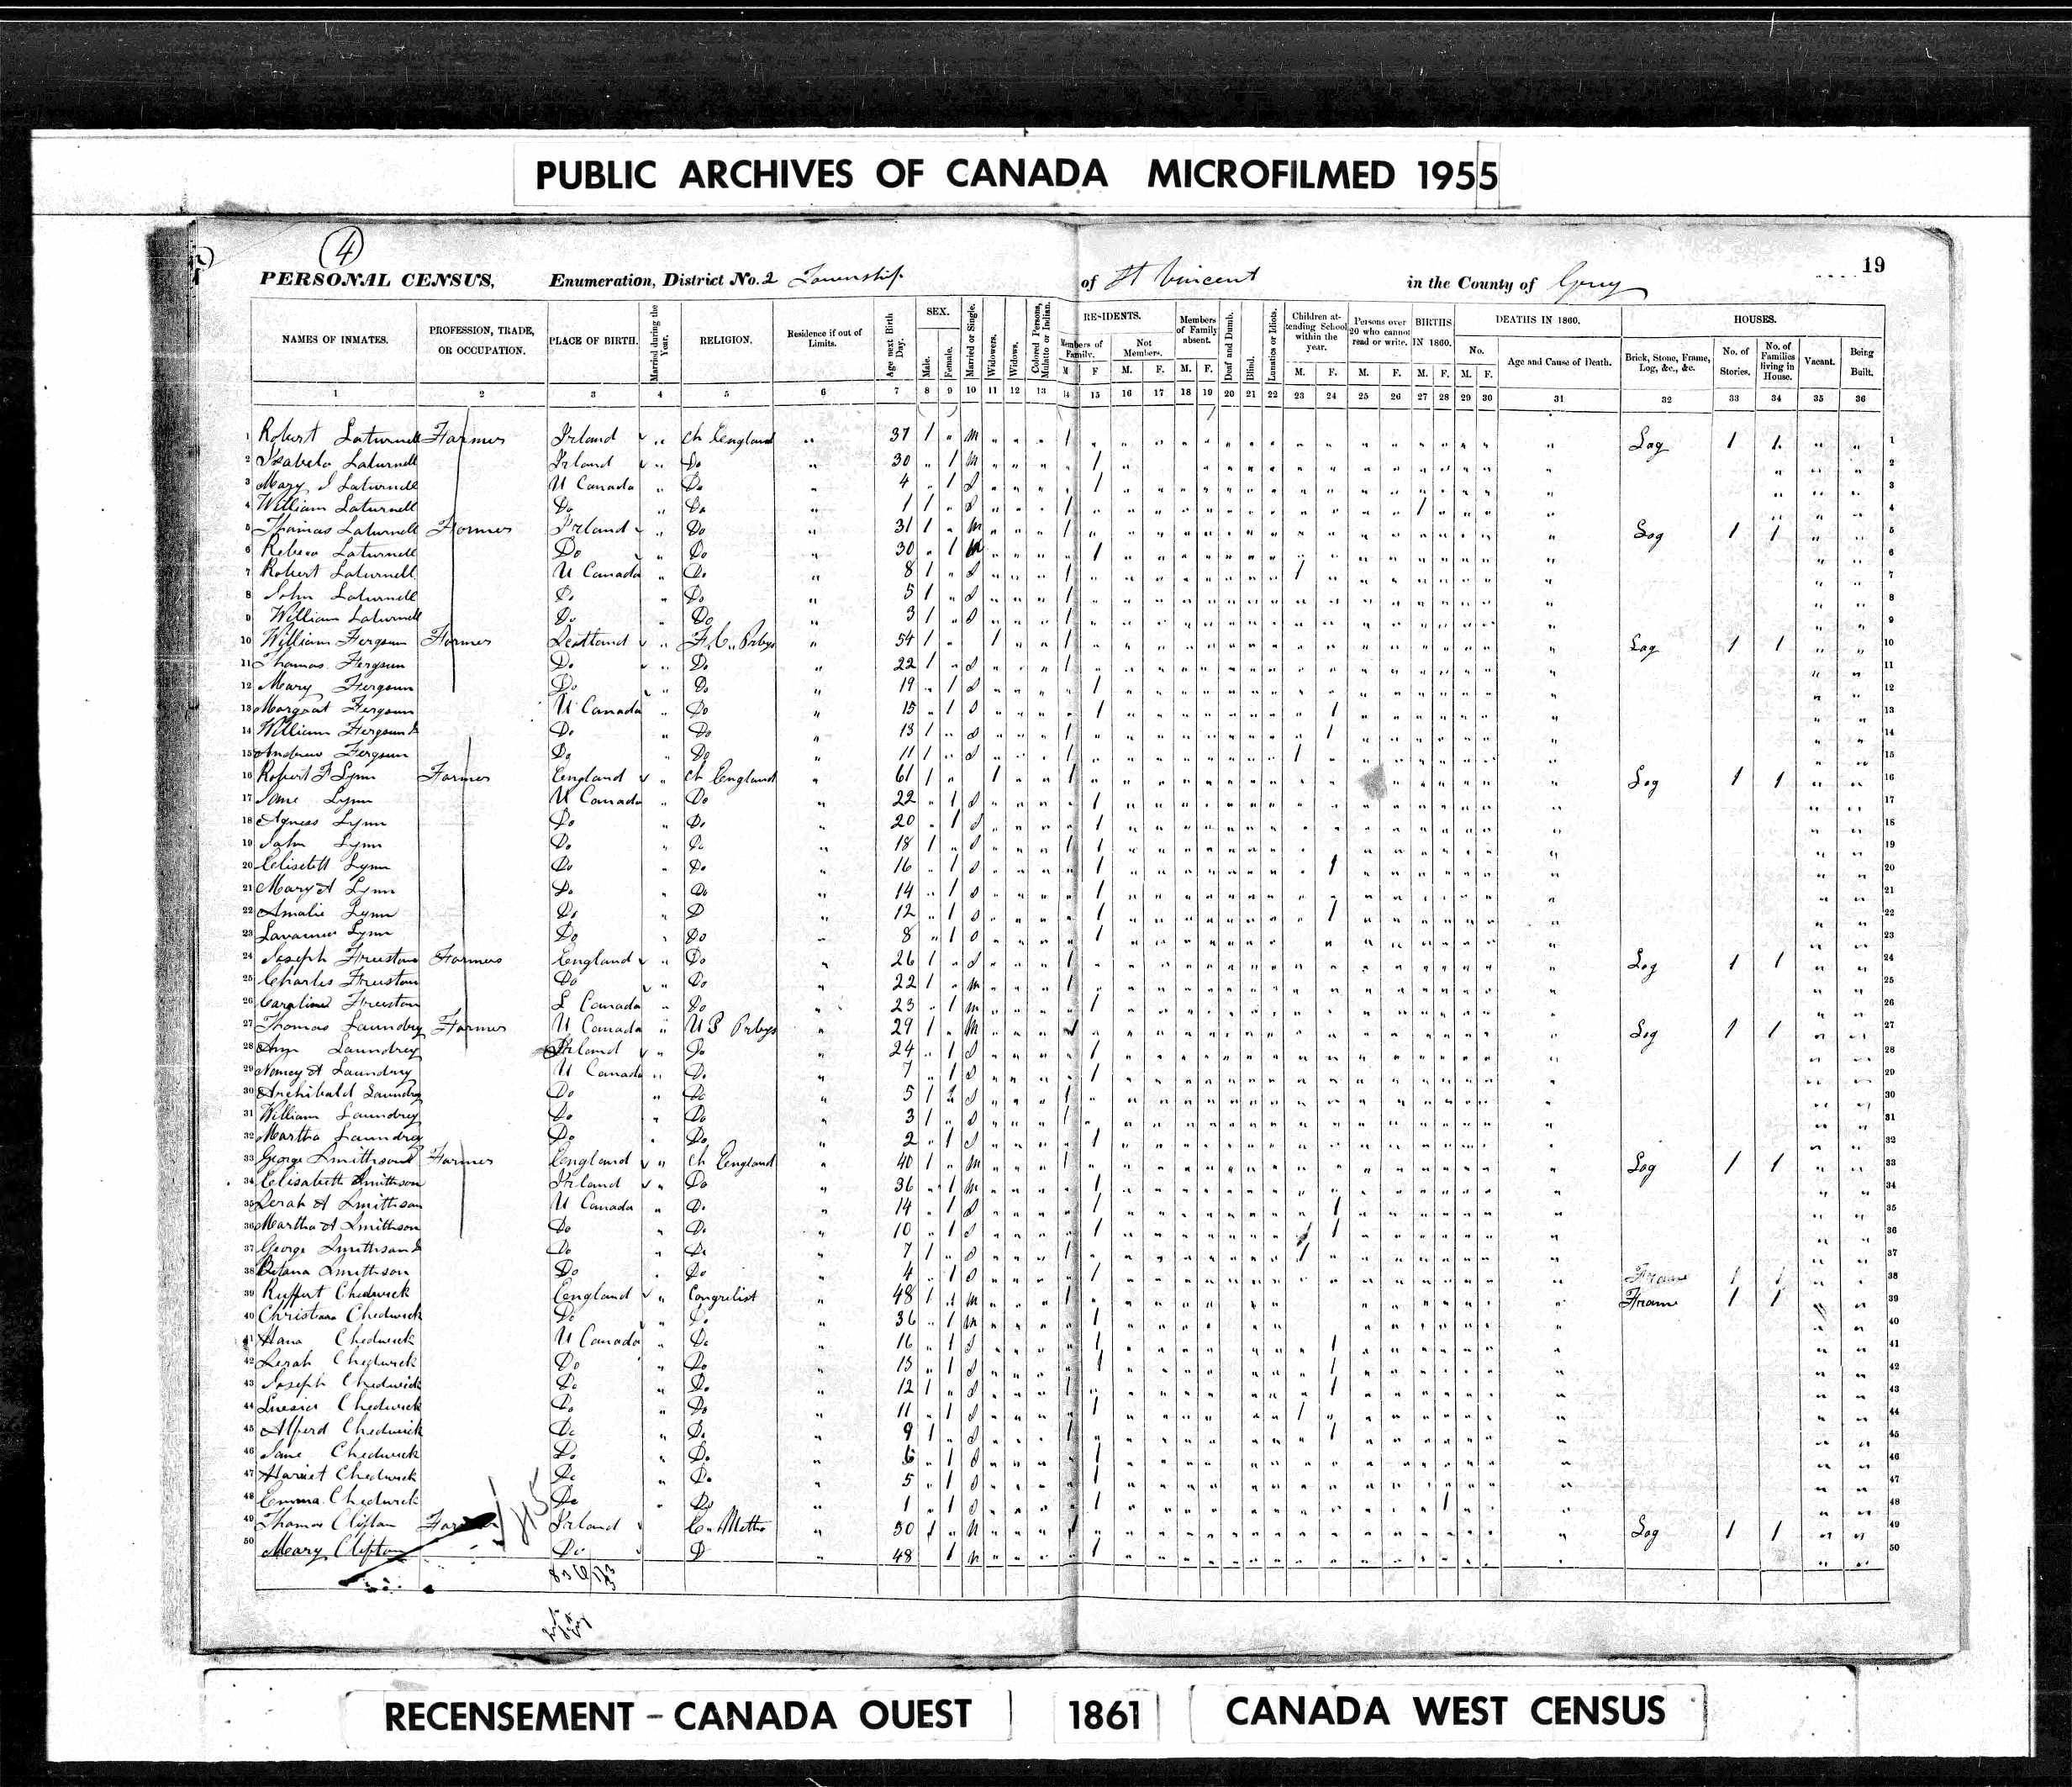 PUBLIC ARCHIVES OF CANADA MICROFILMED 1955
4
19
PERSONAL CENSUS, Enumeration, District No. 2 Township of St Vincent in the County of Grey
NAMES OF INMATES. PROFESSION, TRADE, OR OCCUPATION. PLACE OF BIRTH. Married during the Year. RELIGION. Residence if out of Limits. Age next Birth Day. SEX. Male. Female. Married or Single. Widowers. Widows. Colored Persons, Mulatto or Indian. RESIDENTS. Members of Family. M F Not Members. M. F. Members of Family absent. M. F. Deaf and Dumb. Blind. Lunatics or Idiots. Children attending School within the year. M. F. Persons over 20 who cannot read or write. M. F. BIRTHS IN 1860. M. F. DEATHS IN 1860. No. M. F. Age and Cause of Death. HOUSES. Brick, Stone, Frame, Log, &c., &c. No. of Stories. No. of Families living in House. Vacant. Being Built.
1 2 3 4 5 6 7 8 9 10 11 12 13 14 15 16 17 18 19 20 21 22 23 24 25 26 27 28 29 30 31 32 33 34 35 36
1 Robert Laturnell Farmer Irland ch England 37 1 M 1 Log 1 1 1
2 Isabela Laturnell Irland Do 30 1 M 1 2
3 Mary J Laturnell U Canada Do 4 1 S 1 3
4 William Laturnell Do Do 1 1 S 1 1 4
5 Thomas Laturnell Farmer Irland Do 31 1 M 1 Log 1 1 5
6 Rebeca Laturnell Do Do 30 1 M 1 6
7 Robert Laturnell U Canada Do 8 1 S 1 1 7
8 John Laturnell Do Do 5 1 S 1 8
9 William Laturnell Do Do 3 1 S 1 9
10 William Fergsun Farmer Scotland F. C. Prbys 54 1 1 1 Log 1 1 10
11 Thomas Fergsun Do Do 22 1 S 1 11
12 Mary Fergsun Do Do 19 1 S 1 12
13 Margrat Fergsun U Canada Do 15 1 S 1 1 13
14 William Fergsun Do Do 13 1 S 1 1 14
15 Andrew Fergsun Do Do 11 1 S 1 1 15
16 Robert F Lynn Farmer England ch England 61 1 1 1 Log 1 1 16
17 Jane Lynn U Canada Do 22 1 S 1 17
18 Agness Lynn Do Do 20 1 S 1 18
19 John Lynn Do Do 18 1 S 1 19
20 Elisebett Lynn Do Do 16 1 S 1 1 20
21 Mary A Lynn Do Do 14 1 S 1 21
22 Amalie Lynn Do D 12 1 S 1 1 22
23 Lynn Do Do 8 1 S 1 23
24 Joseph Freustom Farmers England Do 26 1 S 1 Log 1 1 24
25 Charles Freustom Do Do 22 1 M 25
26 Caroline Freustom L Canada Do 23 1 M 1 26
27 Thomas Laundry Farmer U Canada U P Prbys 29 1 M 1 Log 1 1 27
28 Ann Laundrey Irland Do 24 1 S 1 28
29 Nancy A Laundry U Canada Do 7 1 S 1 29
30 Archibald Laundry Do Do 5 1 S 1 30
31 William Laundrey Do Do 3 1 S 1 31
32 Martha Laundrey Do Do 2 1 S 1 32
33 George Smithson Farmer England ch England 40 1 M 1 Log 1 1 33
34 Elisabeth Smithson Irland Do 36 1 M 1 34
35 Serah A Smithson U Canada Do 14 1 S 1 1 35
36 Martha A Smithson Do Do 10 1 S 1 1 36
37 George Smithson Do Do 7 1 S 1 1 37
38 Smithson Do Do 4 1 S 1 Fram 1 1 38
39 Ruffurt Chedwick England Congrelist 48 1 M 1 Fram 1 1 39
40 Christiana Chedwick Do Do 36 1 M 1 40
41 Hana Chedwick U Canada Do 16 1 S 1 1 41
42 Serah Chedwick Do Do 13 1 S 1 1 42
43 Joseph Chedwick Do Do 12 1 S 1 1 43
44 Chedwick Do Do 11 1 S 1 1 44
45 Alferd Chedwick Do Do 9 1 S 1 1 45
46 Jane Chedwick Do Do 6 1 S 1 46
47 Harriet Chedwick Do Do 5 1 S 1 47
48 Emma Chedwick Do Do 1 1 S 1 1 48
49 Thomas Clifton Farmer Irland C. Metho 50 1 M 1 Log 1 1 49
50 Mary Clifton Do D 48 1 M 1 50
RECENSEMENT - CANADA OUEST 1861 CANADA WEST CENSUS